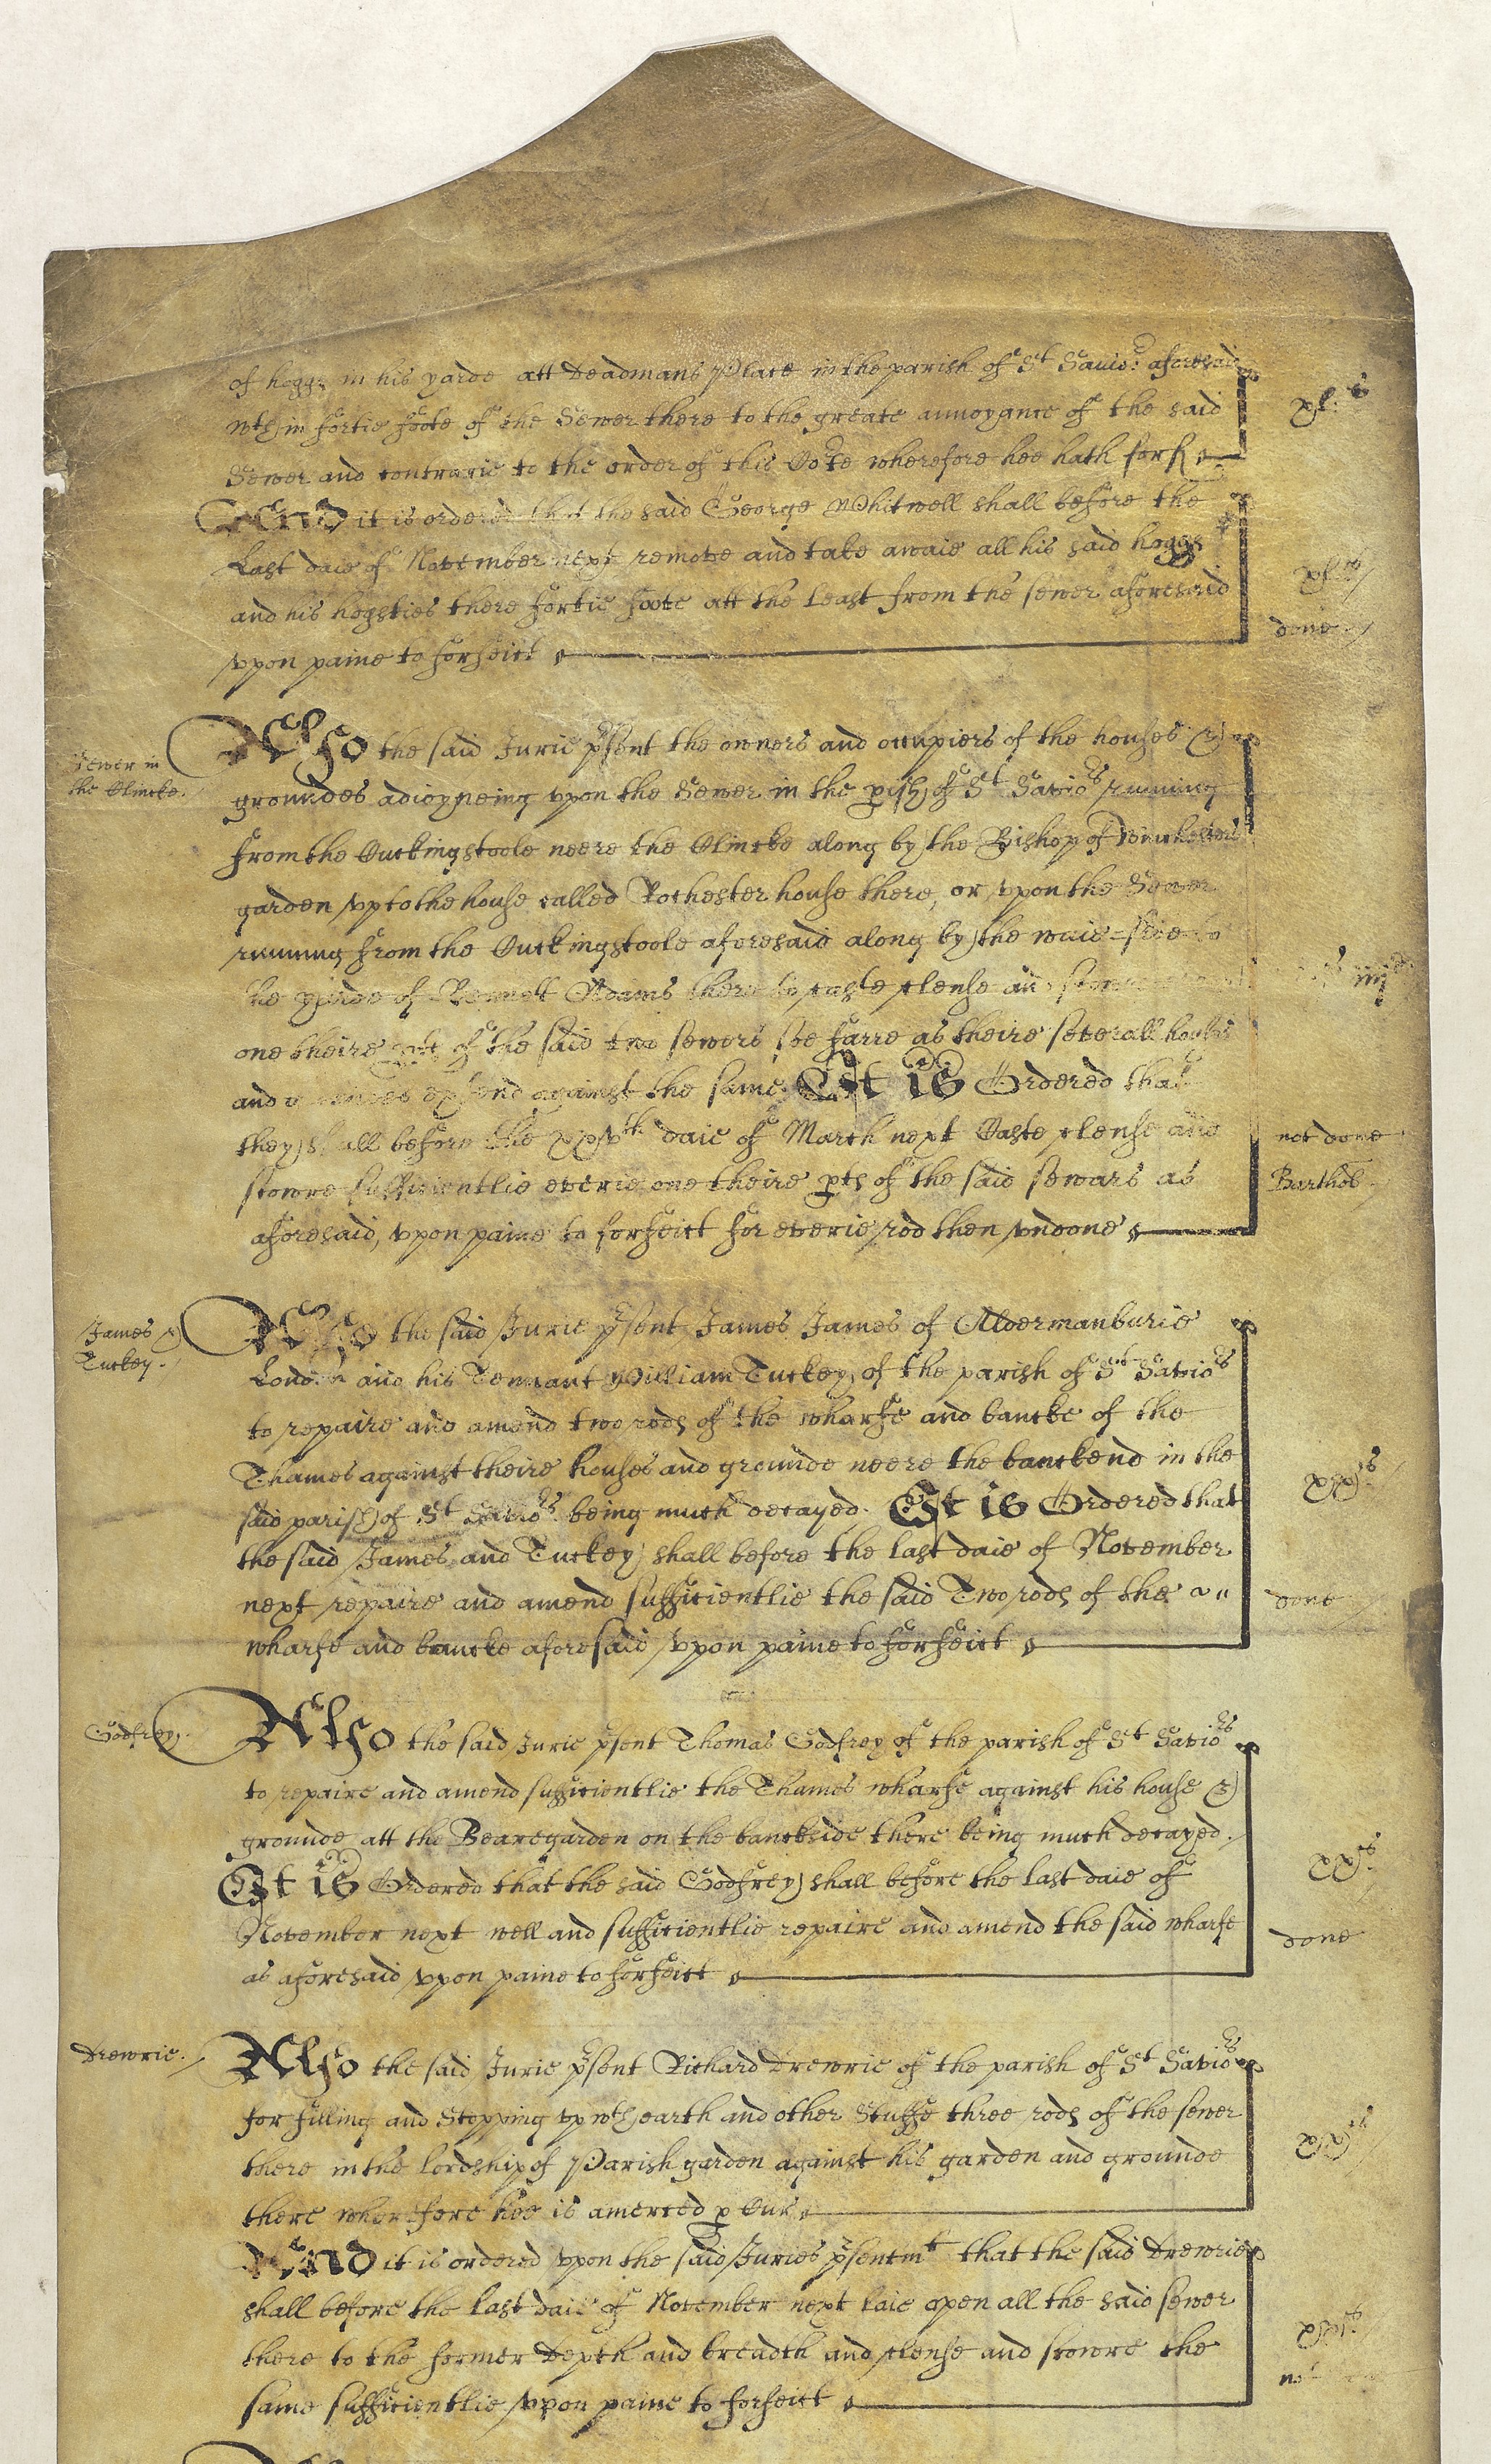 of hoggs in his yarde att Deadmans Place in the parish of St Savio:rs aforesaid
wthin fortie foote of the Sewer there to the greate annoyance of the said xls.
Sewer and contrarie to the order of this Corte wherefore hee hath forf
And it is ordered that the said George Whitwell shall before the
Last daie of November next remove and take awaie all his said hoggs
and his hogsties there fortie foote att the least from the sewer aforesaid xls
done
vpon paine to forfeict
Sewer in
the Clincke.
Also the said Jurie prsent the owners and occupiers of the houses &
groundes adioyneing vpon the Sewer in the pish of St Saviors running
from the Cuckingstoole neere the Clincke along by the Bishop of Winchesters
garden vp to the house called Rochester house there, or vpon the Sewer
running from the Cuckingstoole aforesaid along by the waie=side to
the yarde of Bennett Adams there to caste clense and scowre
one theire of the said two sewers soe farre as theire severall houses
and extend against the same. It is Ordered that
they shall before the xxvth daie of March next Caste clense and
not done
scowre sufficientlie everie one theire pts of the said sewars as
Barthol
aforesaid, vpon paine to forfeict for everie rod then vndone
James &
Tuckey.
Also the said Jurie prsent James James of Aldermanburie
London and his Tennant William Tuckey of the parish of St Saviors
to repaire and amend two rods of the wharfe and bancke of the
Thames against theire houses and grounde neere the banckend in the
xxs
said parish of St Saviors being much decayed. It is Ordered that
the said James and Tuckey shall before the last daie of November
next repaire and amend sufficientlie the said Two rods of the
done
wharfe and bancke aforesaid vpon paine to forfeict
Godfrey.
Also the said Jurie prsent Thomas Godfrey of the parish of St Saviors
to repaire and amend sufficientlie the Thames wharfe against his house &
grounde att the Bearegarden on the banckside there being much decayed.
It is Ordered that the said Godfrey shall before the last daie of
xxs.
November next well and sufficientlie repaire and amend the said wharfe
done
as aforesaid vpon paine to forfeict
Drewrie.
Also the said Jurie prsent Richard Drewrie of the parish of St Saviors
for filling and Stopping vp wth earth and other Stuffe three rods of the sewer
there in the lordship of Parish garden against his garden and grounde xxs
there wherefore hee is amerced p Cur
And it is ordered vpon the said Juries prsentmt that the said Drewrie
shall before the last daie of November next laie open all the said sewer
there to the former depth and breadth and clense and scowre the
same sufficientlie vpon paine to forfeict